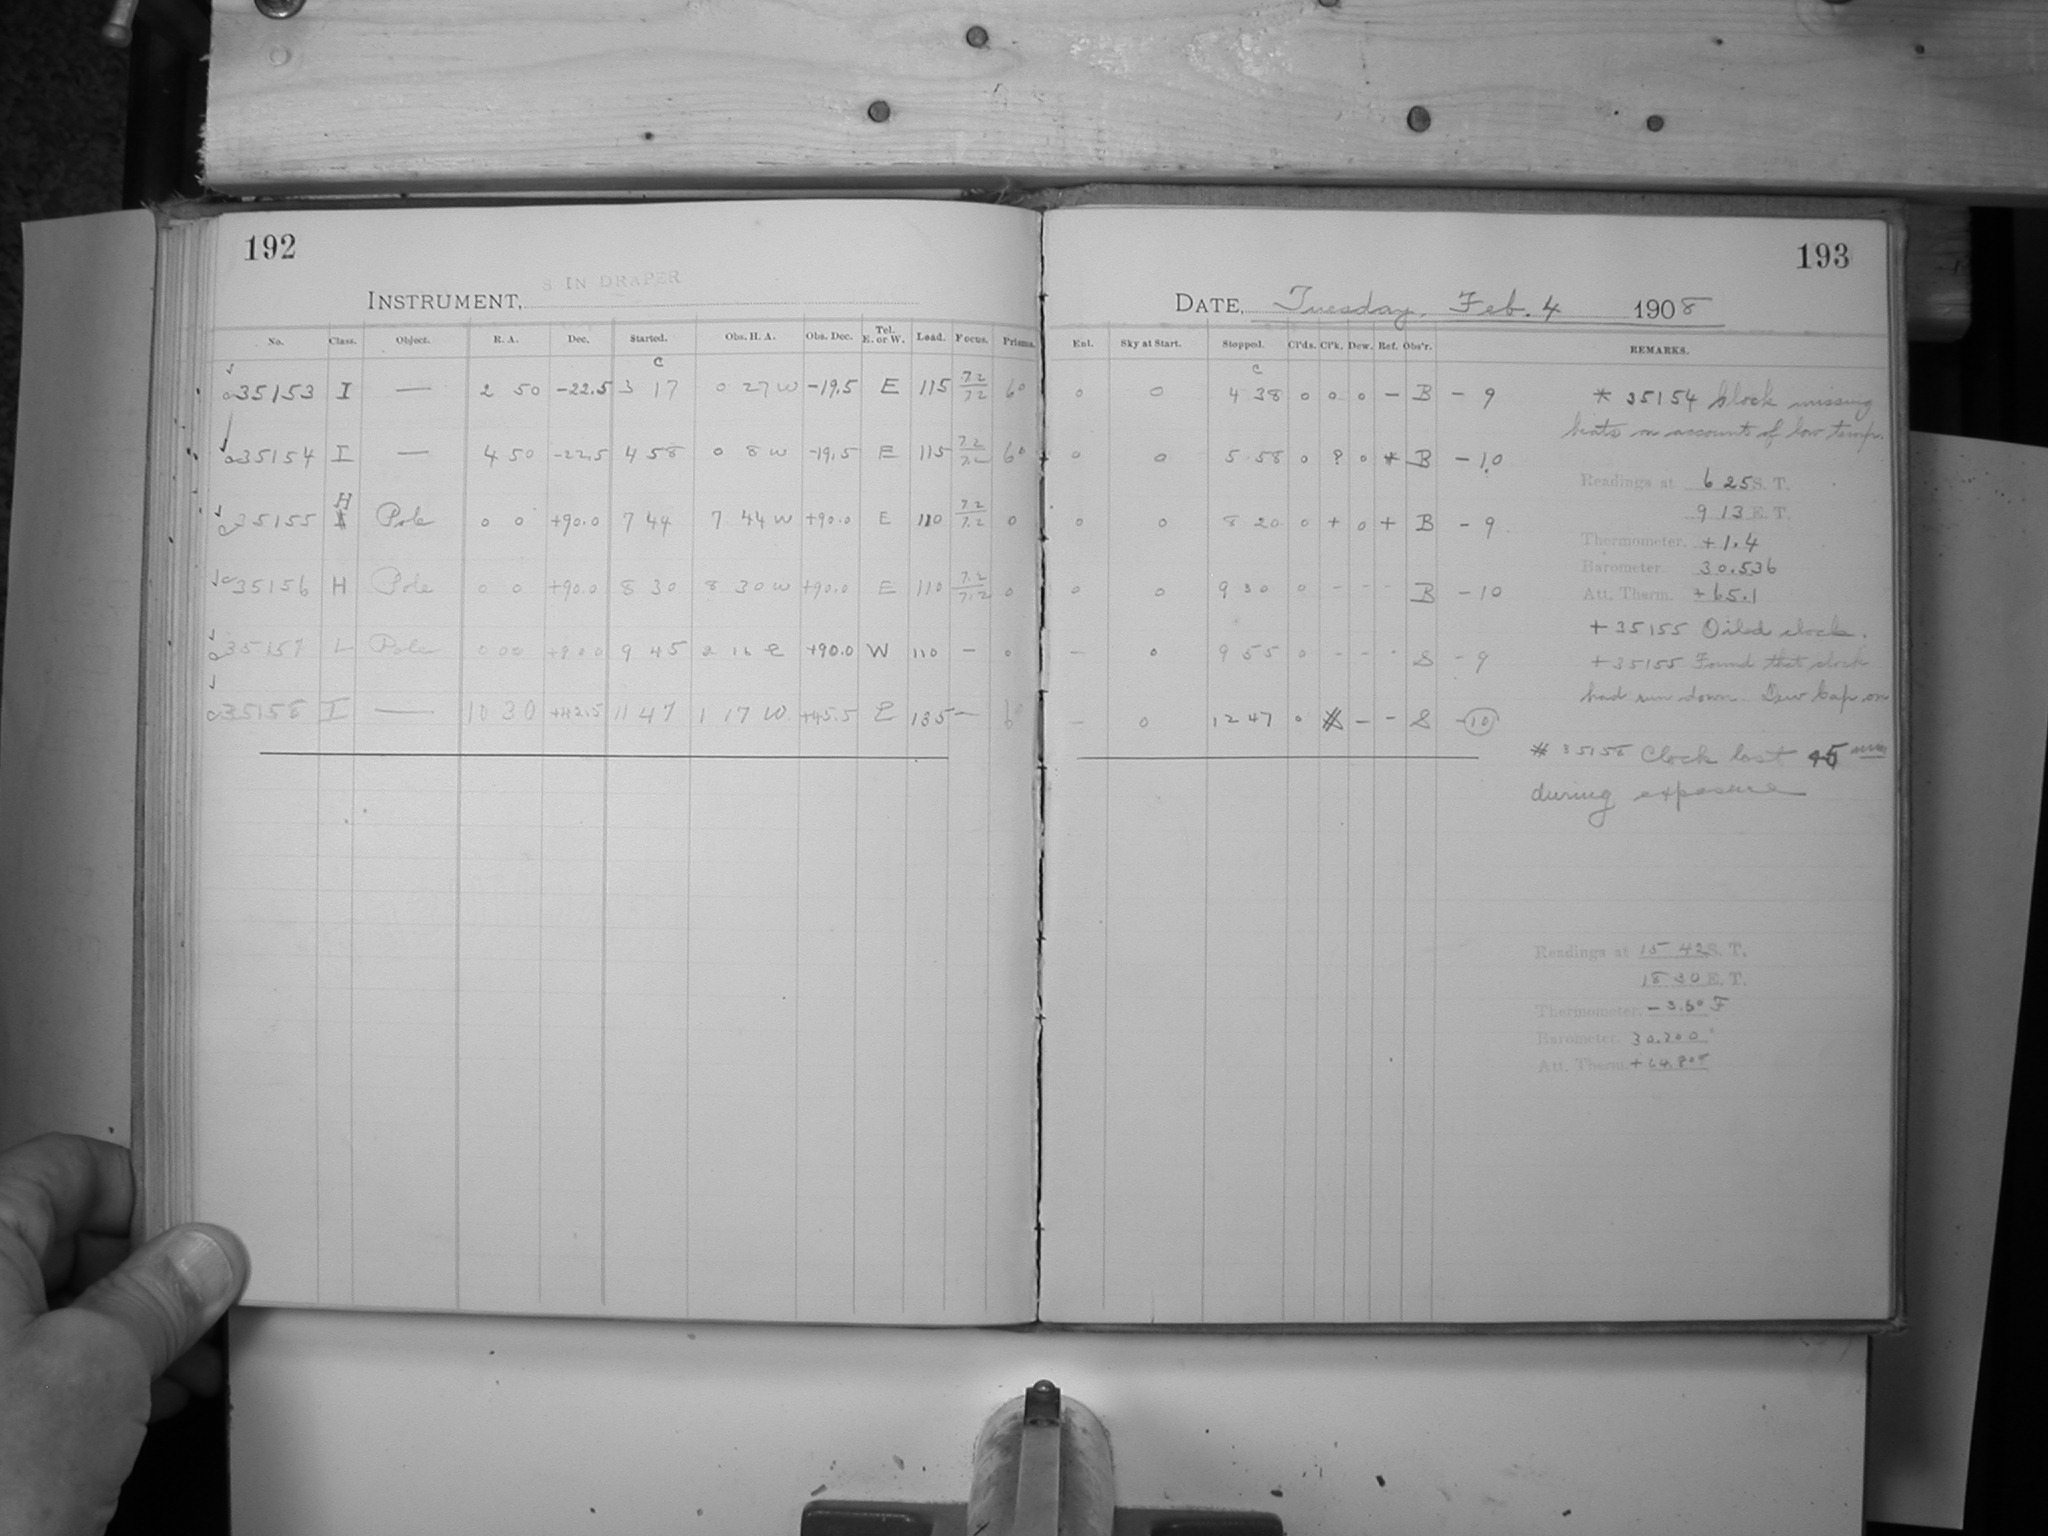 192
8 IN DRAPER
INSTRUMENT,
No. Class. Object. R. A. Dec. Started. Obs. H. A. Obs. Dec. Tel. E. or W. Load. Focus. Prisms.
35153 I — 2 50 -22.5 3 17 0 27 W -19.5 E 115 7.2/7.2 6°
35154 I — 4 50 -22.5 4 58 0 8 W -19.5 E 115 7.2/7.2 6°
35155 H Pole 0 0 +90.0 7 44 7 44 W +90.0 E 110 7.2/7.2 0
35156 H Pole 0 0 +90.0 8 30 8 30 W +90.0 E 110 7.2/7.2 0
35157 L Pole 0 00 +90.0 9 45 2 16 E +90.0 W 110 — 0
35158 I — 10 30 +42.5 11 47 1 17 W +45.5 E 135 —
193
DATE, Tuesday, Feb. 4 1908
Ext. Sky at Start. Stopped. Cl'ds. Cl'k. Dew. Ref. Obs'r. REMARKS.
0 0 4 38 0 0 0 — B - 9
0 0 5 58 0 ? 0 * B - 10
0 0 8 20 0 + 0 + B - 9
0 0 9 30 0 - - - B - 10
— 0 9 55 0 - - - S - 9
— 0 12 47 0 — - S - 10
* 35154 Clock missing
beats on account of low temp.
Readings at 6 25 S. T.
9 13 E. T.
Thermometer. +1.4
Barometer. 30.536
Att. Therm. +65.1
+ 35155 Oiled clock.
+ 35155 Found that clock
had run down Dew Cap on
# 35158 Clock lost
during exposure
Readings at 15 42 S. T.
18 30 E. T.
Thermometer. F
Barometer. 30.200
Att. Therm.